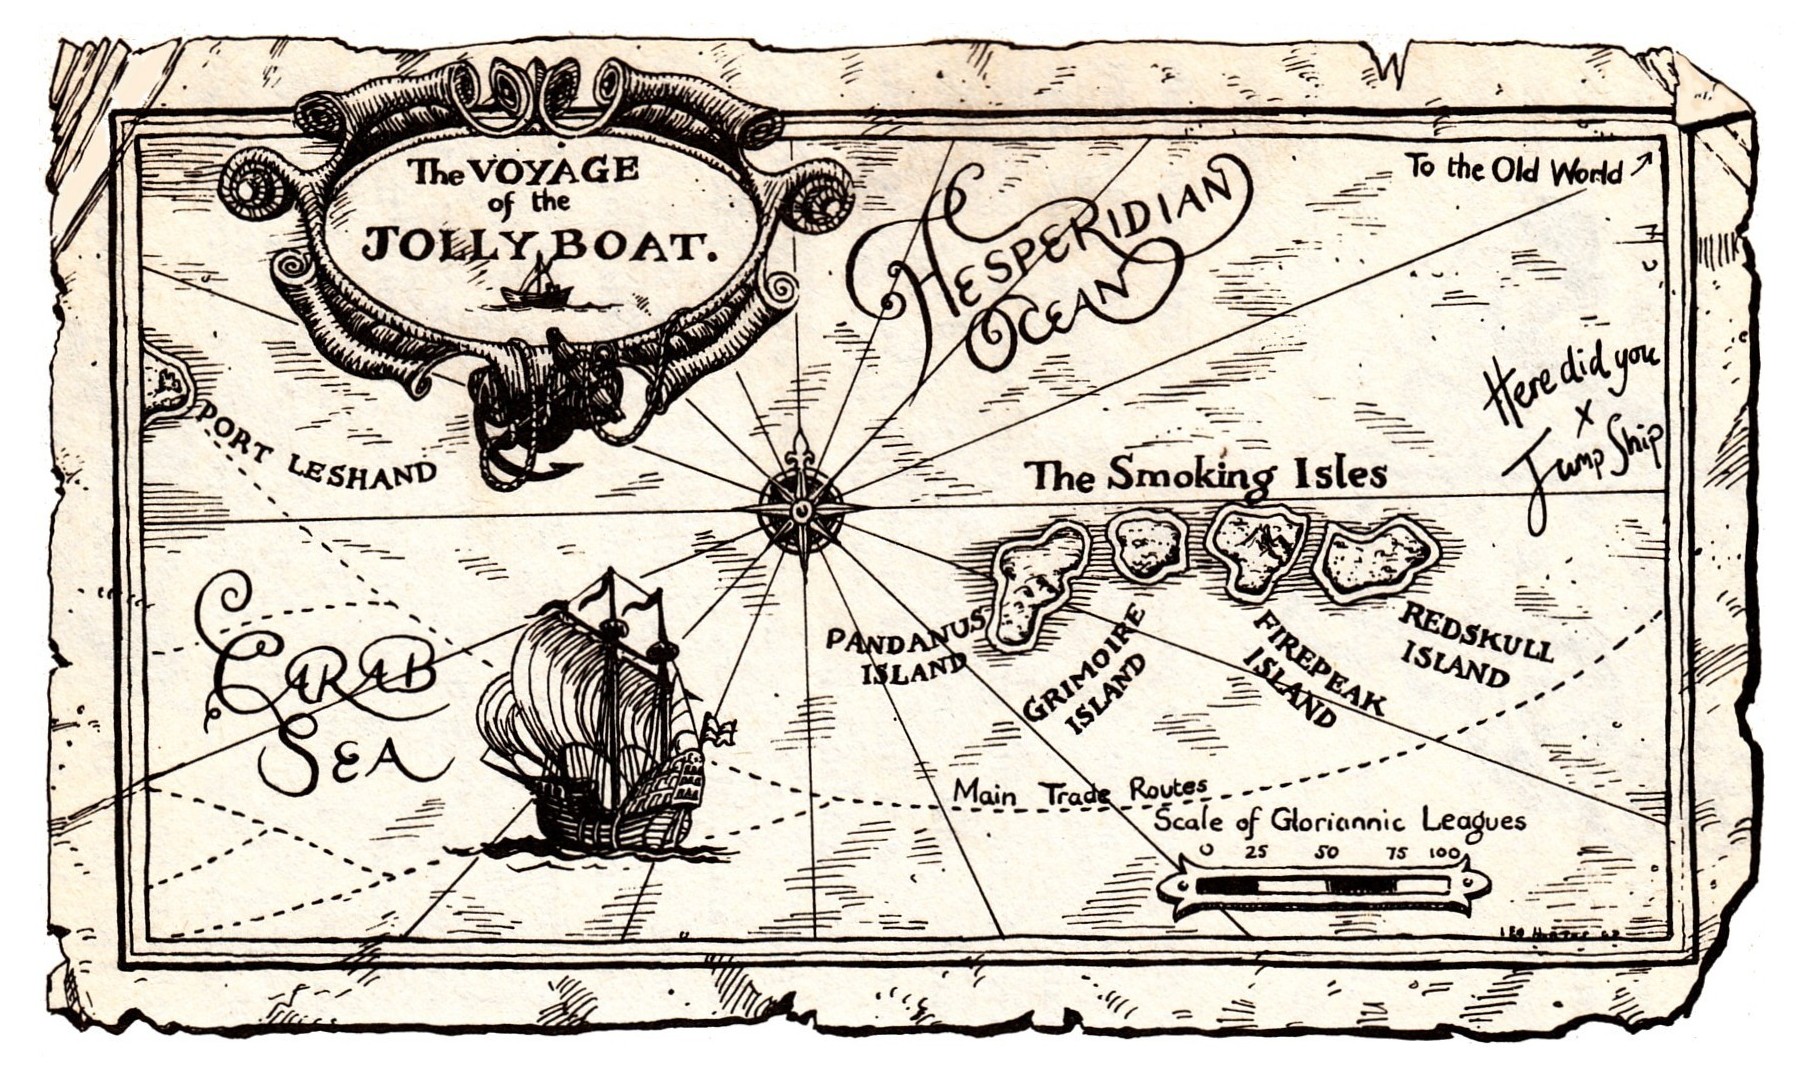 The VOYAGE
of the
JOLLY BOAT.
HESPERIDIAN
OCEAN
To the Old World
Here did you
x
Jump Ship
PORT LESHAND
The Smoking Isles
PANDANUS
ISLAND
GRIMOIRE
ISLAND
FIREPEAK
ISLAND
REDSKULL
ISLAND
CARAB
SEA
Main Trade Routes
Scale of Gloriannic Leagues
0 25 50 75 100
LEO